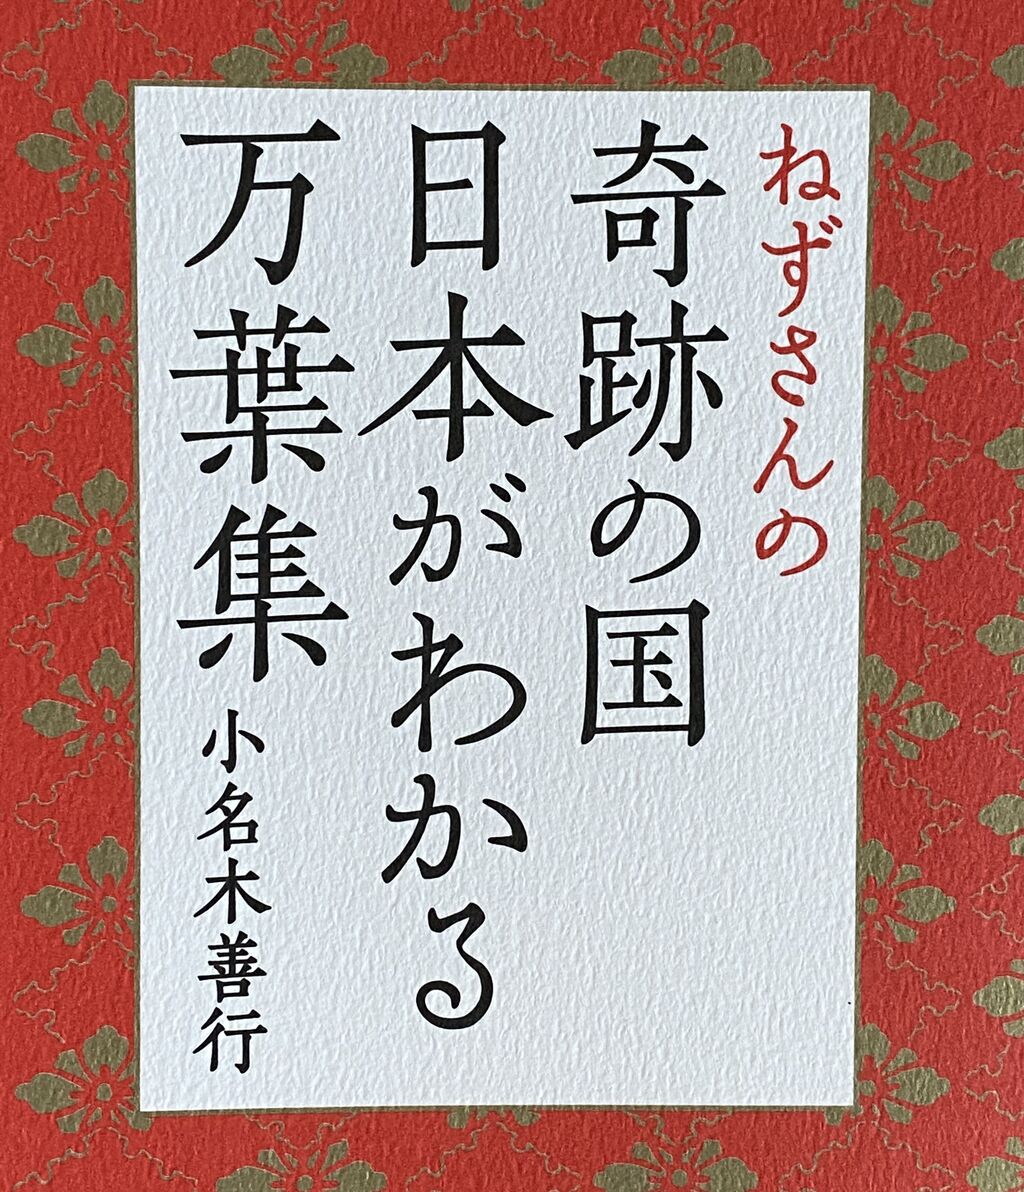 ねずさんの
奇跡の国
日本がわかる
万葉集 小名木善行